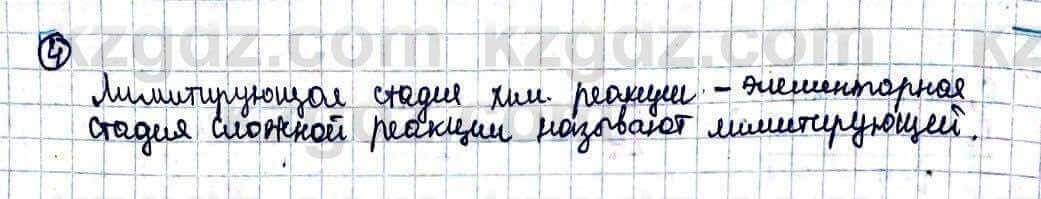 ④
Лимитирующая стадия хим. реакции – элементарная
стадия сложной реакции называют лимитирующей.
kzgdz.com kzgdz.com kz